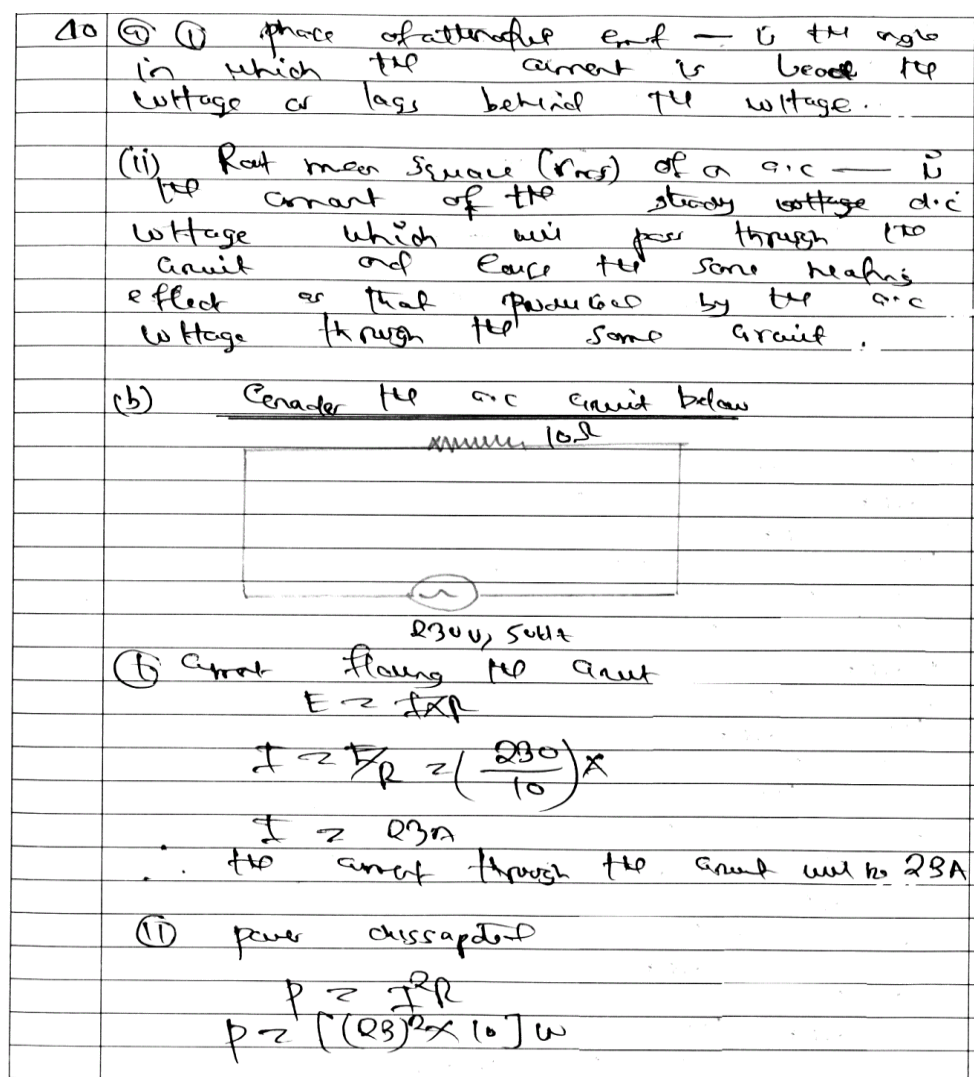 10 (a) (i) phase of alternative emf — is the angle
in which the current is leads the
voltage or lags behind the voltage.
(ii) Root mean square (rms) of a a.c — is
the amount of the steady voltage d.c
voltage which will pass through the
circuit and cause the same heating
effect as that produced by the a.c
voltage through the same circuit.
(b) Consider the a.c circuit below
10Ω
230V, 50Hz
(i) Current flowing the circuit
E = I×R
I = E/R = (230/10) A
I = 23A
∴ the current through the circuit will be 23A
(ii) power dissapated
P = I²R
P = [(23)² × 10] W